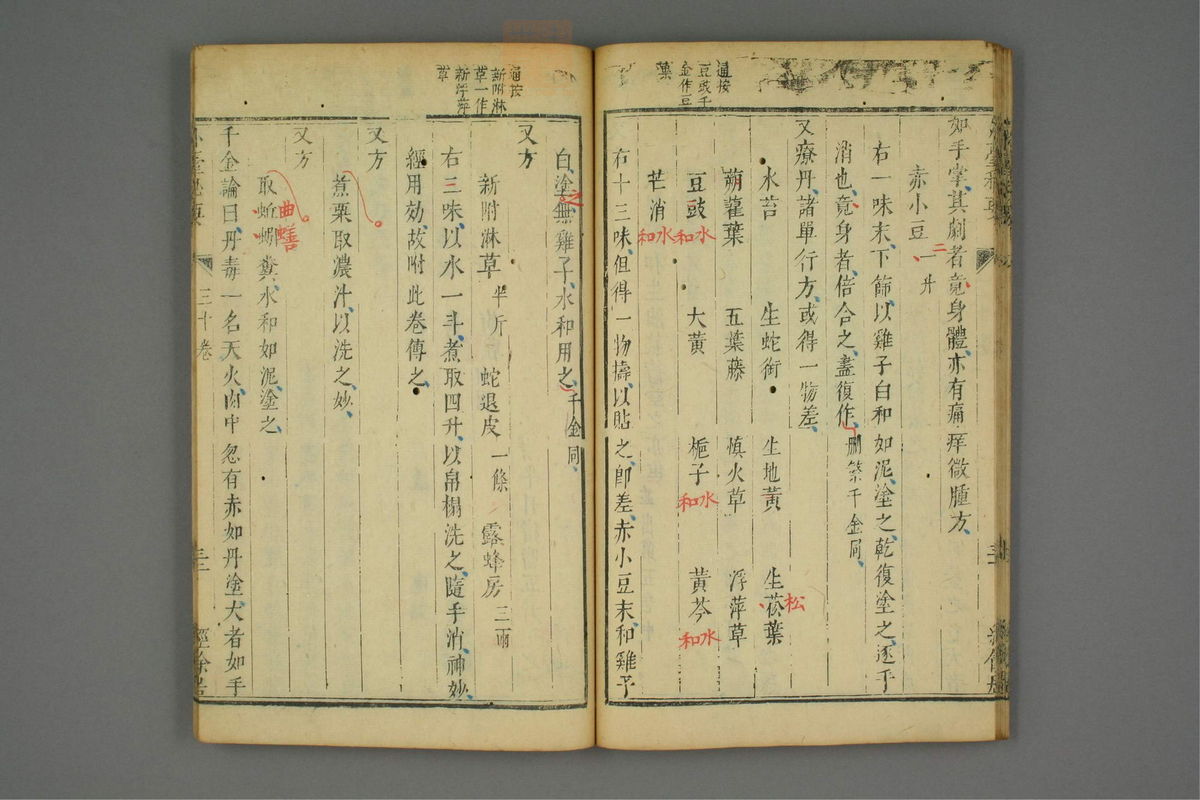 通按
豆豉千
金作豆
葉
如手掌、其劇者竟身體、亦有痛痒微腫方、
赤小豆一升
二
右一味末、下篩、以雞子白和如泥、塗之、乾復塗之、逐手
消也、竟身者、倍合之、盡復作、刪繁千金同、
又療丹、諸單行方、或得一物差、
水苔 生蛇銜 生地黃 生菘葉
松
蒴藋葉 五葉藤 慎火草 浮萍草
豆豉 大黃 梔子 黃芩
水和 水和 水和
芒消
水和
右十三味、但得一物擣、以貼之、即差、赤小豆末、和雞子
通按
新附淋
草一作
新浮萍
草
白、塗無雞子、水和用之、千金同、
之
又方
新附淋草半斤 蛇退皮一條 露蜂房三兩
右三味、以水一斗、煮取四升、以帛榻洗之、隨手消、神妙、
經用効、故附此卷傳之、
又方
煮栗取濃汁、以洗之、妙、
又方
取蚯蚓糞、水和如泥、塗之、
曲蟮
千金論曰、丹毒一名天火、肉中忽有赤如丹塗、大者如手
三十卷
經餘居